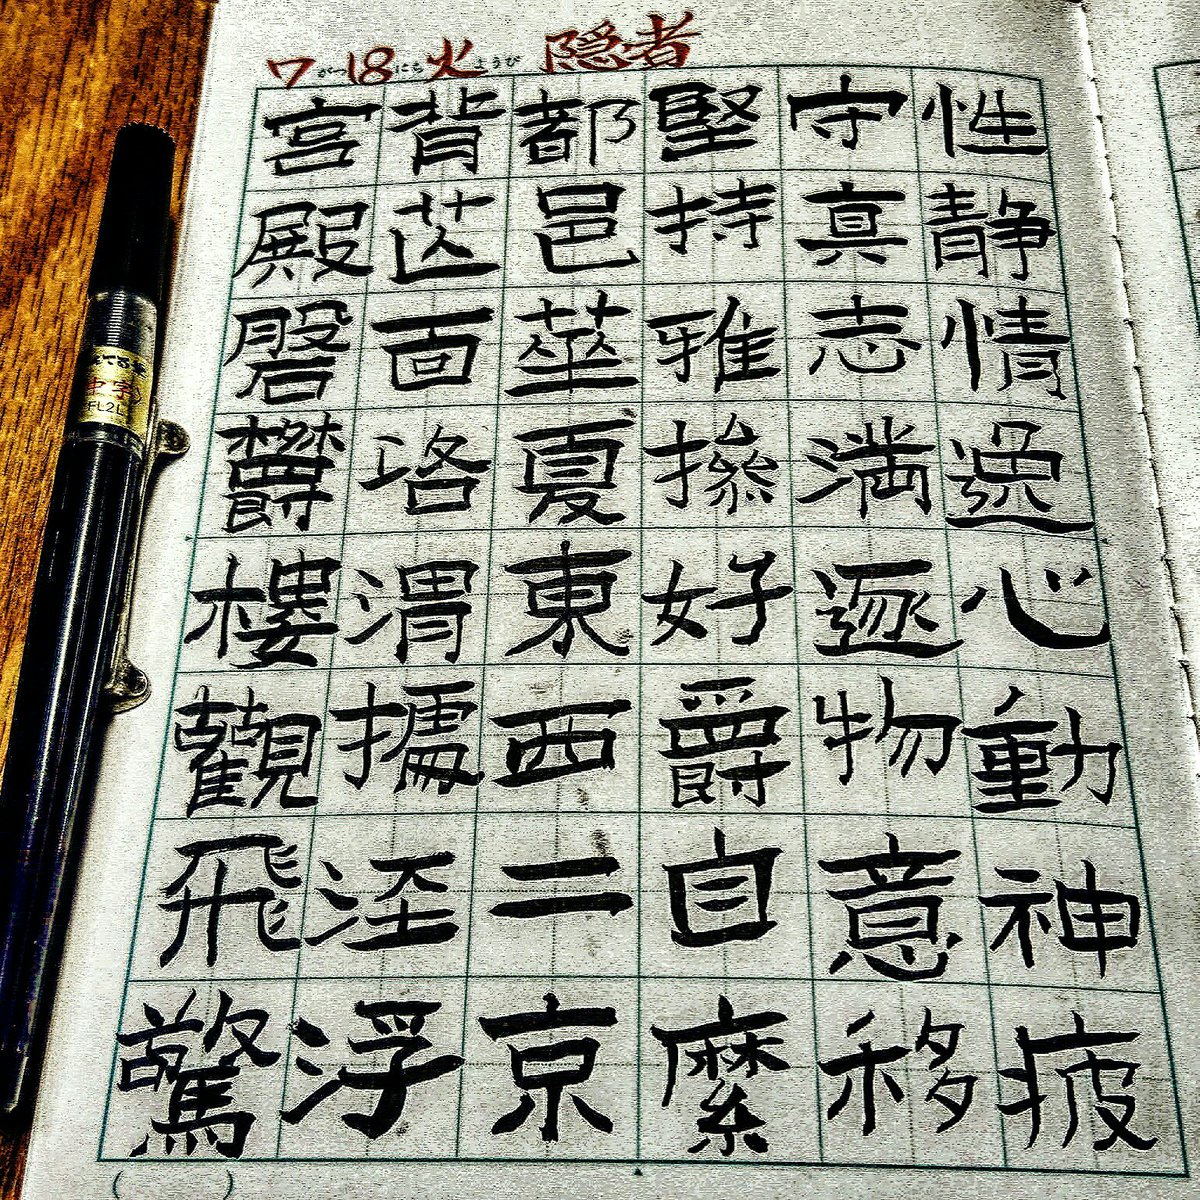 7がつ18にち火ようび 隠者
性静情逸心動神疲
守真志満逐物意移
堅持雅操好爵自縻
都邑華夏東西二京
背芒面洛渭據涇浮
宮殿磐鬱樓觀飛驚
てる筆
中字
FL2L